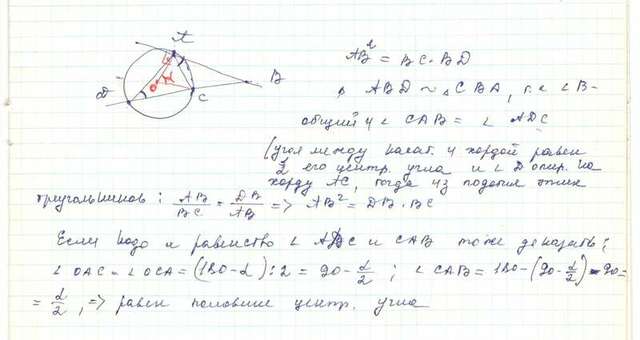 A
B
C
D
O
α
AB² = BC·BD
ABD ~ △ CBA, т.к ∠ B-
общий и ∠ CAB = ∠ ADC
(угол между касат. и хордой равен
½ его центр. угла и ∠ D опир. на
хорду AC, тогда из подобия этих
треугольников: AB/BC = DB/AB => AB² = DB·BC
Если надо и равенство ∠ ADC и CAB тоже доказать:
∠ OAC = ∠ OCA = (180-α):2 = 90-α/2 ; ∠ CAB = 180-(90-α/2)-90=
= α/2, => равен половине центр. угла